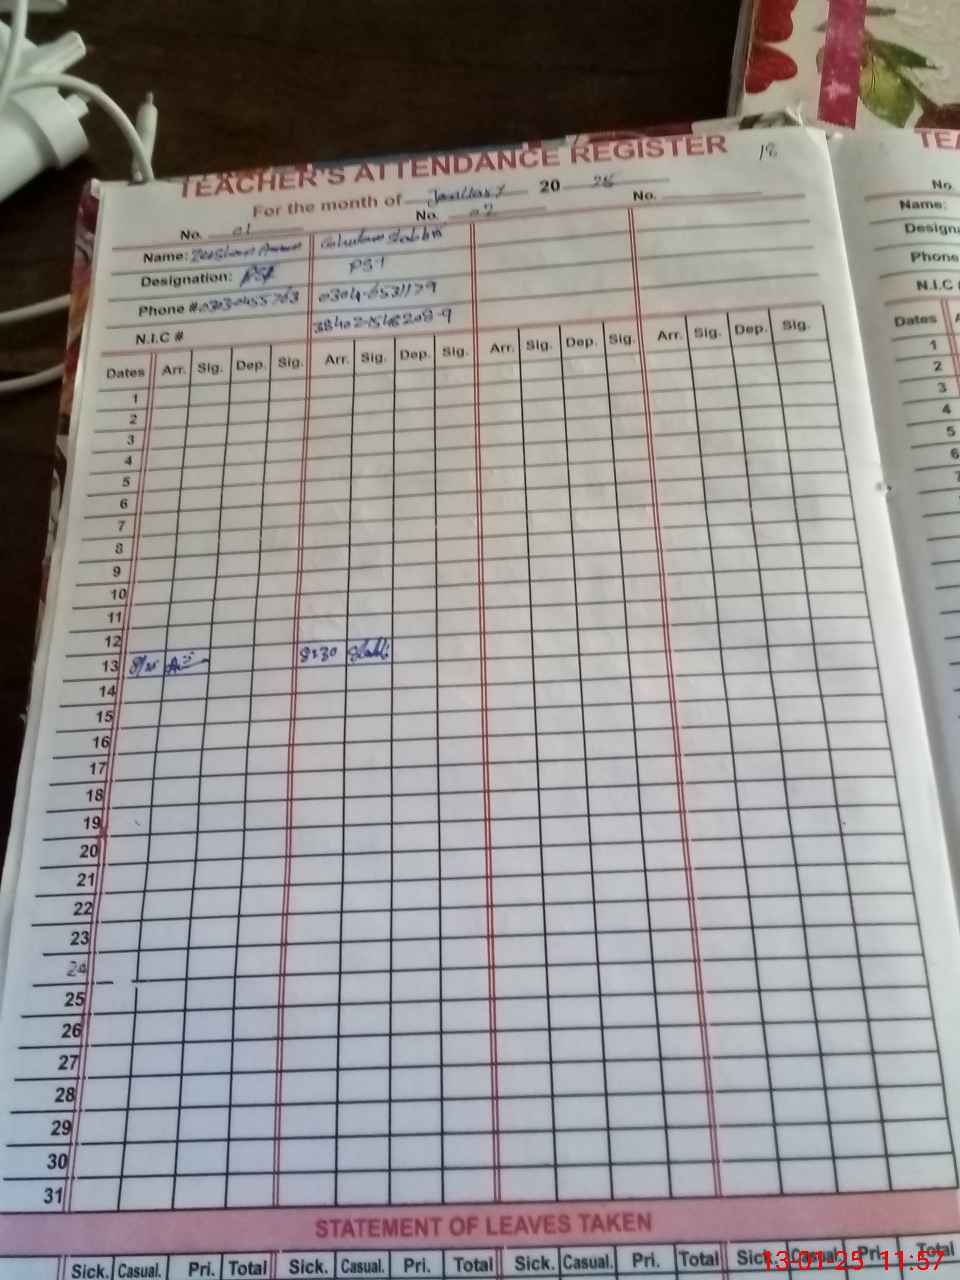 TEACHER'S ATTENDANCE REGISTER 18
For the month of January 20 25
No. 01 No. 02 No.
Name:
Designation: PST PST
Phone # 0304-6531179
N.I.C #
Dates Arr. Sig. Dep. Sig. Arr. Sig. Dep. Sig. Arr. Sig. Dep. Sig. Arr. Sig. Dep. Sig.
1
2
3
4
5
6
7
8
9
10
11
12
13 8:30
14
15
16
17
18
19
20
21
22
23
24
25
26
27
28
29
30
31
STATEMENT OF LEAVES TAKEN
Sick. Casual. Pri. Total Sick. Casual. Pri. Total Sick. Casual. Pri. Total Sick. Casual. Pri. Total
TEA
No.
Name:
Designa
Phone
N.I.C
Dates A
1
2
3
4
5
6
7
13-01-25 11:57